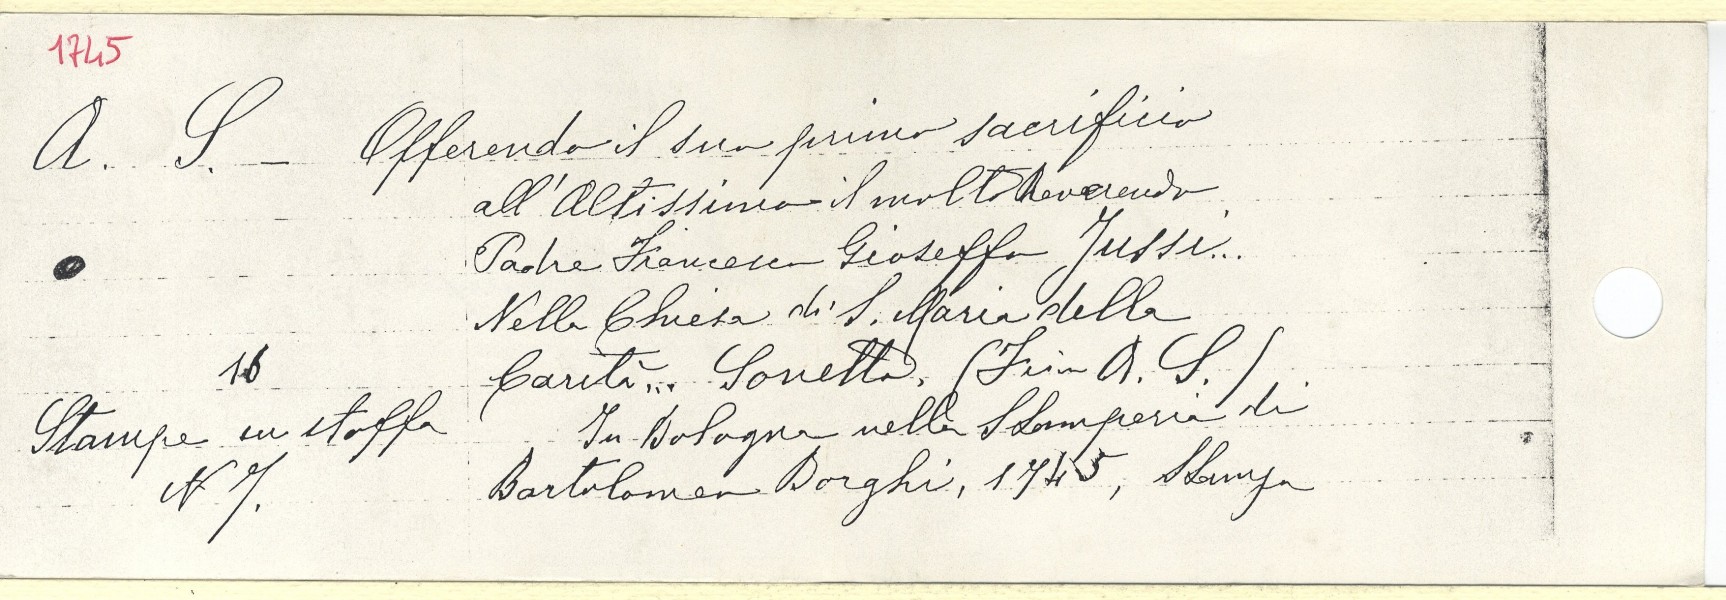 1745
A. S. - Offerendo il suo primo sacrificio
all'Altissimo il molto Reverendo
Padre Francesco Gioseffo Jussi...
Nella Chiesa di S. Maria della
16 Carità... Sonetto. (Firm A. S.).
Stampe su stoffa In Bologna nella Stamperia di
N 7. Bartolomeo Borghi, 1745, Stampa